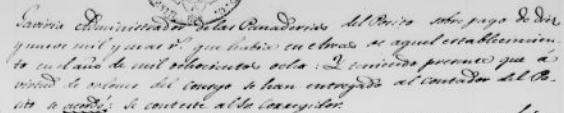 Gaviria Administrador de las Panaderias del Posito sobre pago de diez
y nueve mil y mas r.s que habia en ellas de aquel establecimien
to en el año de mil ochocientos ocho: Y teniendo presente que á
virtud de ordenes del Consejo se han entregado al Contador del Po
sito se acordó: se conteste al Sr Corregidor.